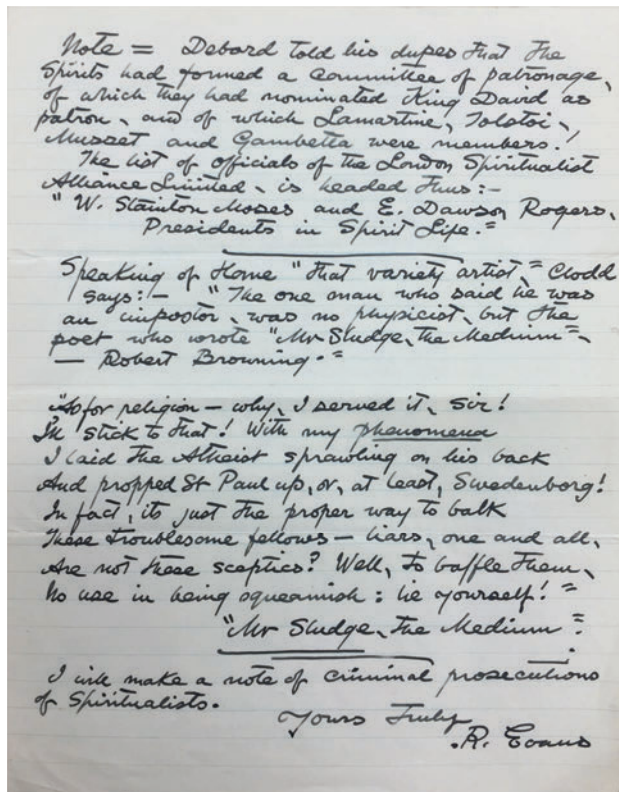 Note = Debord told his dupes that the
Spirits had formed a Committee of patronage,
of which they had nominated King David as
patron, and of which Lamartine, Tolstoi,
Musset and Gambetta were members!
The list of officials of the London Spiritualist
Alliance Limited, is headed thus:-
"W. Stainton Moses and E. Dawson Rogers,
Presidents in Spirit Life."
Speaking of Home "that variety artist," Clodd
says:- "The one man who said he was
an impostor, was no physicist, but the
poet who wrote "Mr Sludge, the Medium",
- Robert Browning."
"As for religion - why, I served it, Sir!
I'll stick to that! With my phenomena
I laid the Atheist sprawling on his back
And propped St Paul up, or, at least, Swedenborg!
In fact, its just the proper way to balk
These troublesome fellows - liars, one and all,
Are not these sceptics? Well, to baffle them,
No use in being squeamish: lie yourself!"
"Mr Sludge, the Medium".
I will make a note of criminal prosecutions
of Spiritualists.
Yours Truly
R. Evans